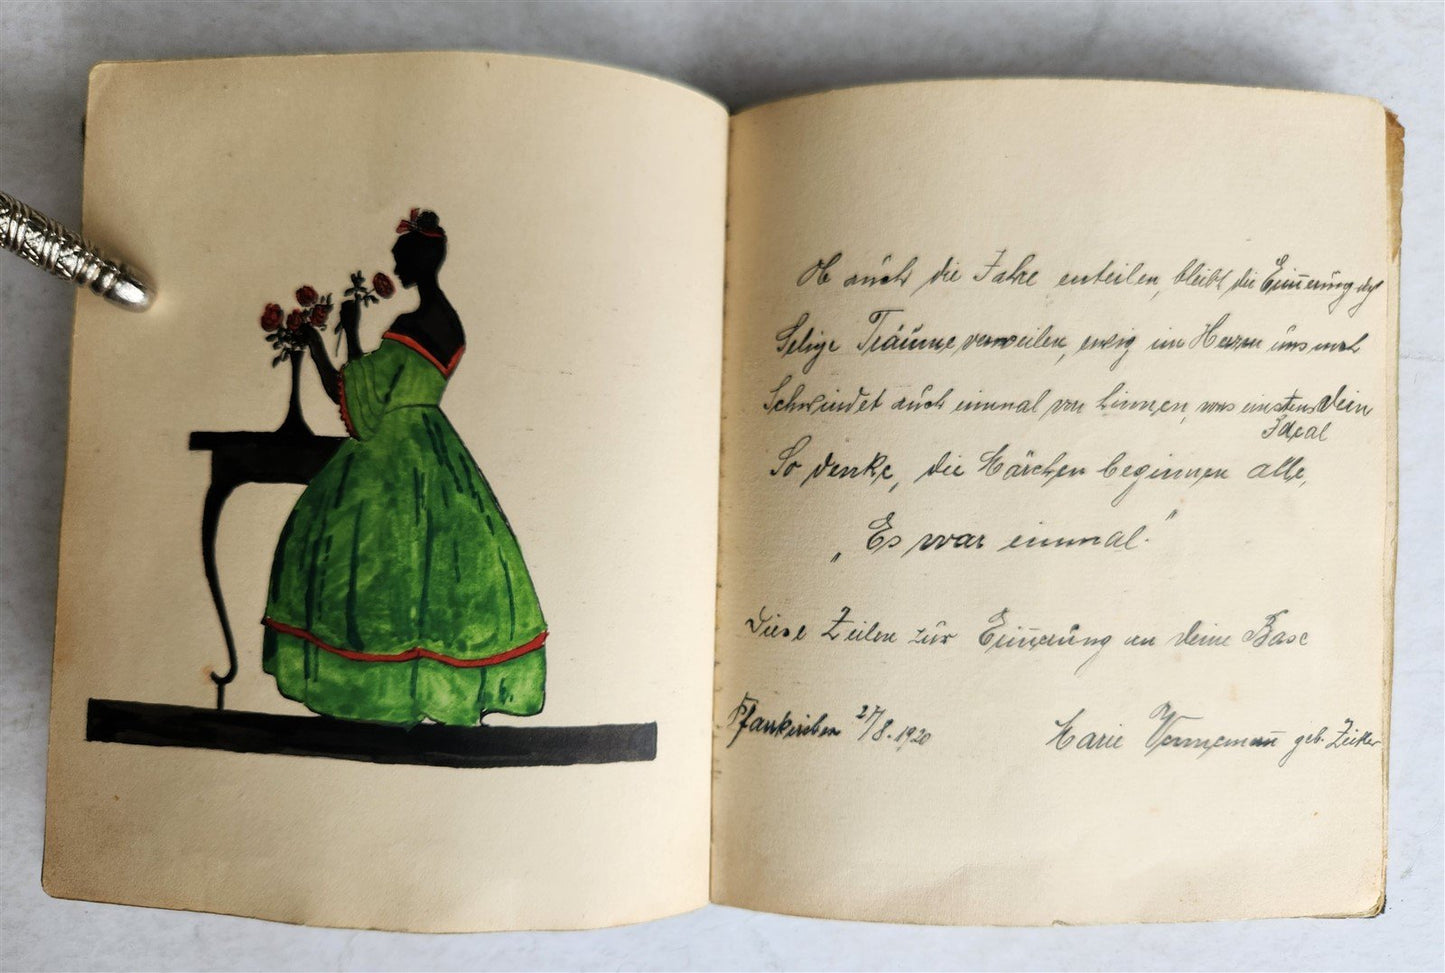 Ob auch die Jahre enteilen, bleibt die Erinn̄erung doch
Selige Träume verweilen, ewig im Herzen uns noch
Schwindet auch einmal von hinnen, was einstens Dein
Ideal
So denke, die Märchen beginnen alle,
„Es war einmal.“
Diese Zeilen zur Erinn̄erung an deine Base
27/8. 1920 Marie geb.